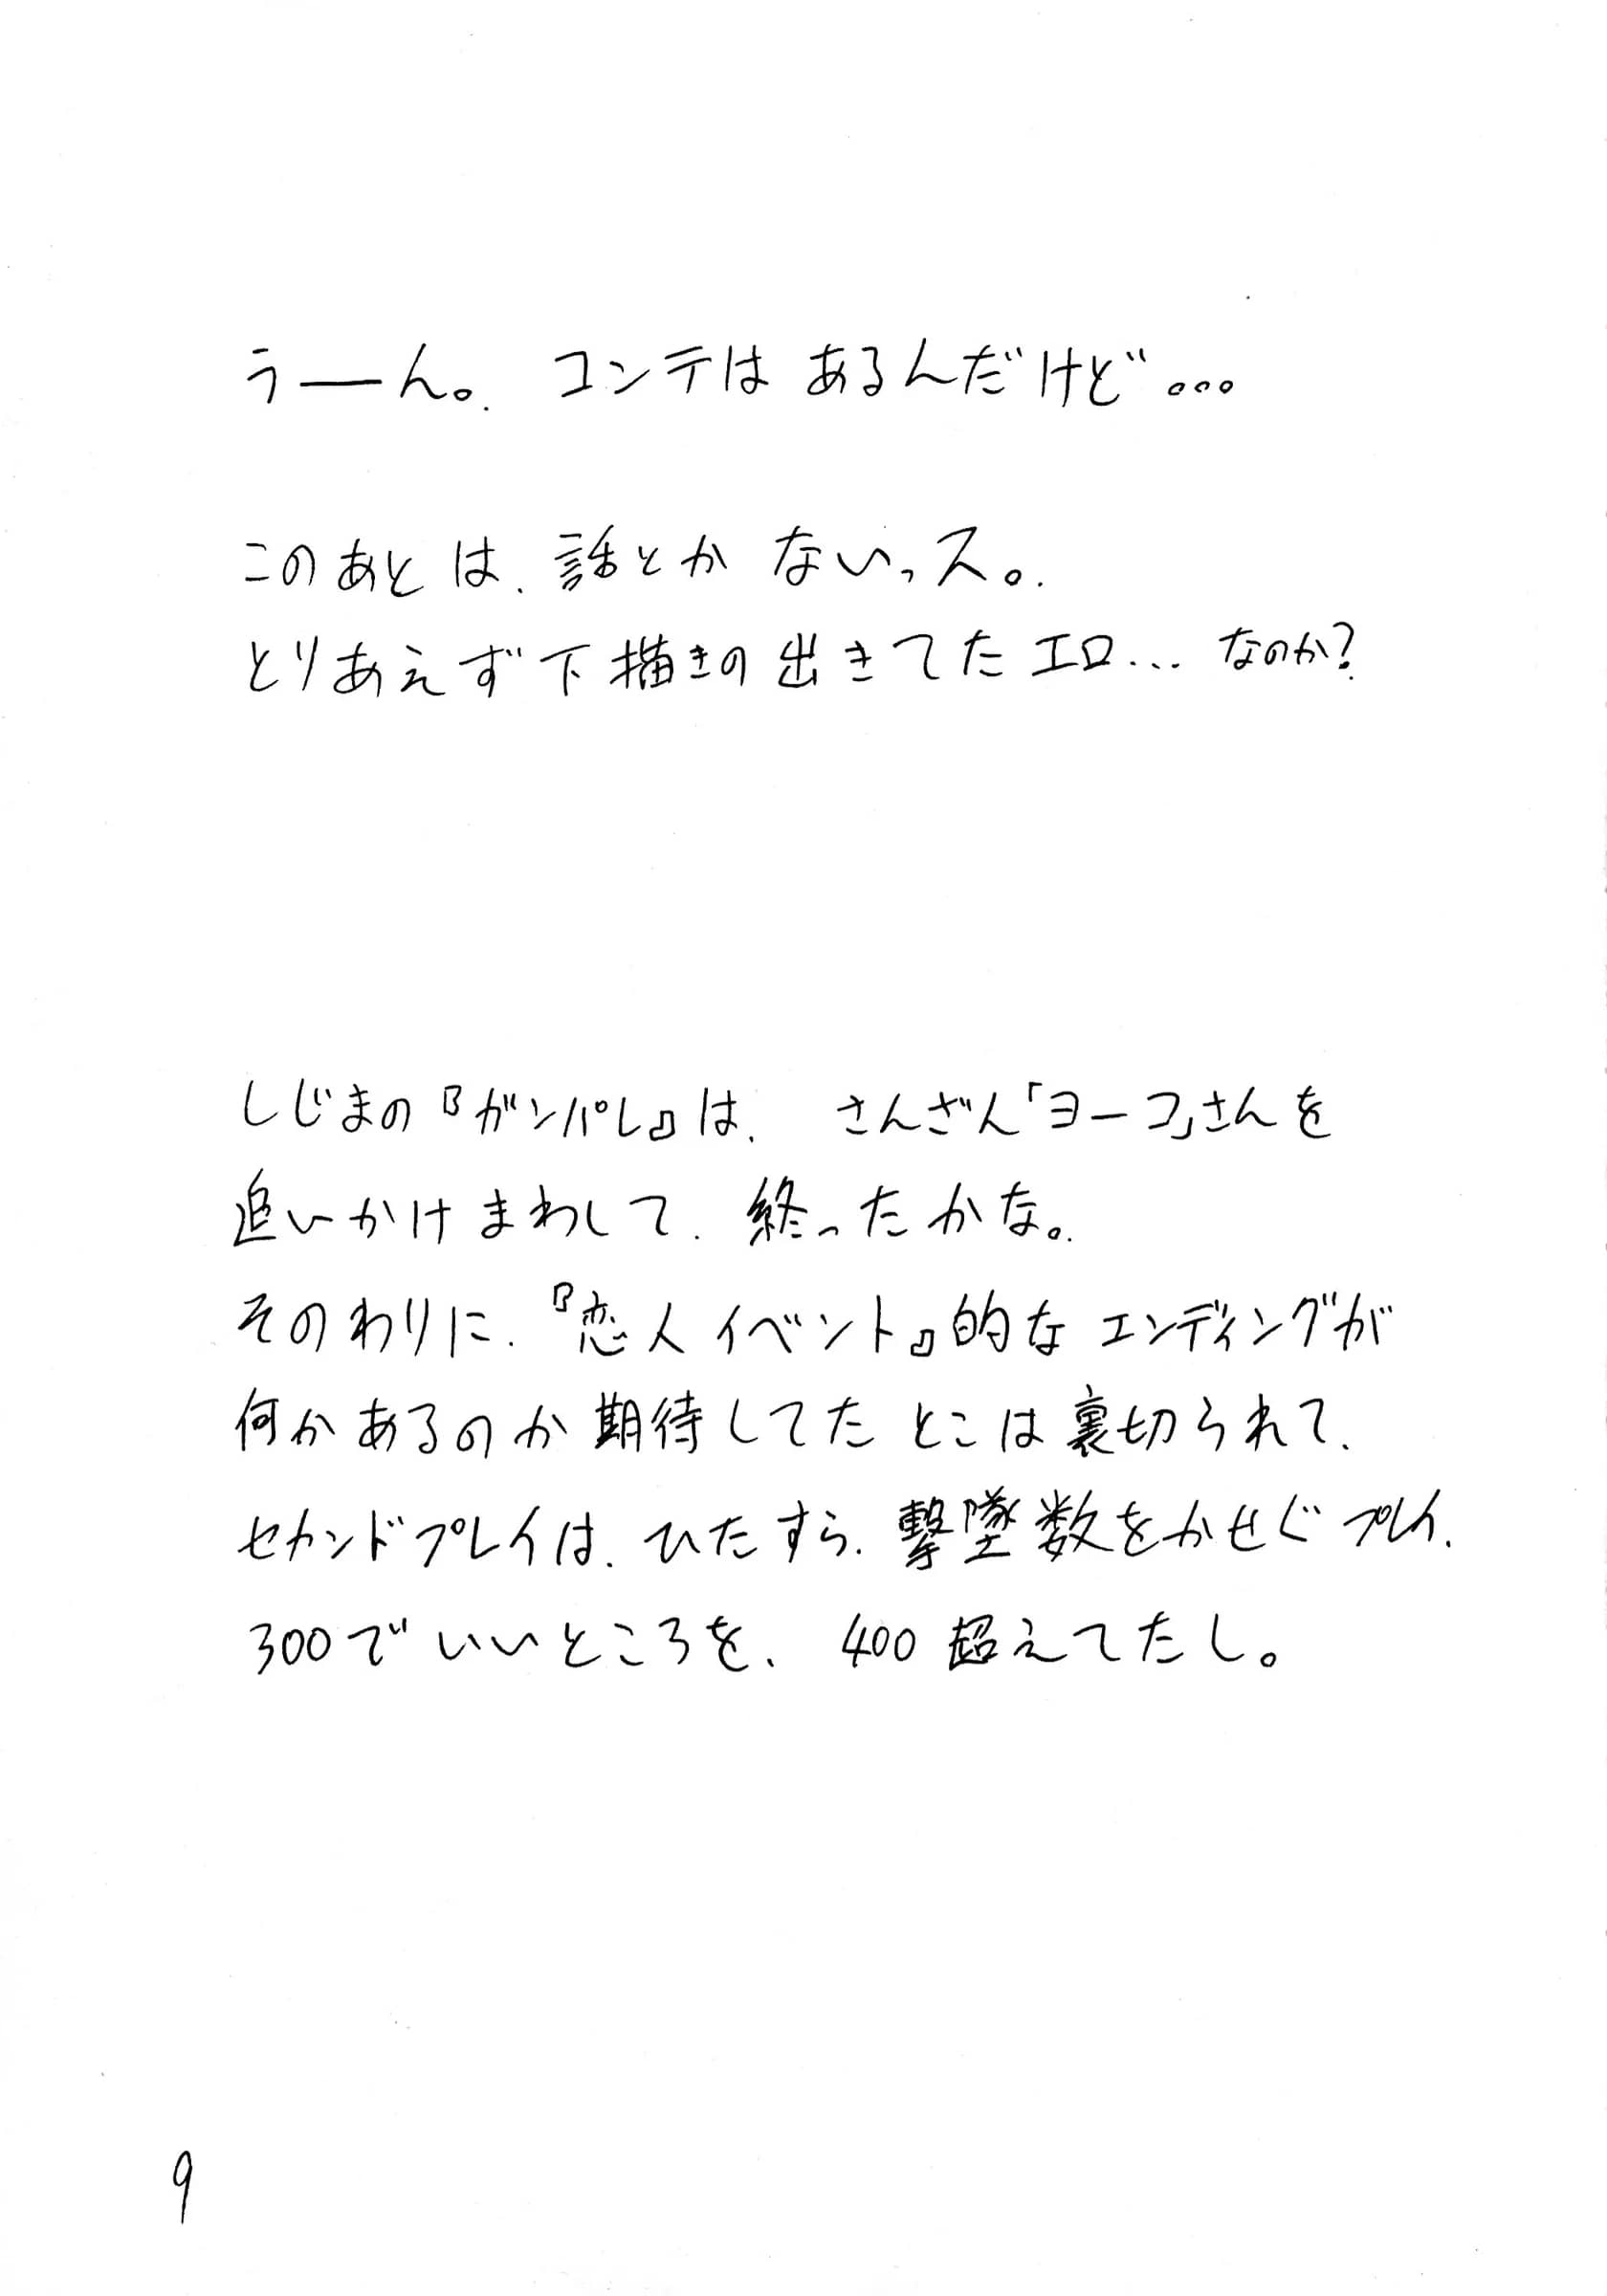 うーん。. コンテは あるんだけど...
このあとは、話とか ないっス。.
とりあえず下描きの出きてたエロ... なのか?
しじまの『ガンパレ』は、 さんざん「ヨーコ」さんを
追いかけまわして、終ったかな。.
そのわりに、『恋人イベント』的な エンディングが
何かあるのか期待してた とこは裏切られて、
セカンドプレイは、ひたすら、撃墜数をかせぐ プレイ、
300で いいところを、 400 超えてたし。
9